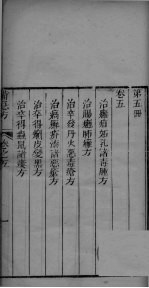 第五冊
卷五
治癰疽妬乳諸毒腫方
治腸癰肺癰方
治卒發丹火惡毒瘡方
治瘑癬疥漆諸惡瘡方
治卒得癩皮變黑方
治卒得蟲鼠諸瘻方